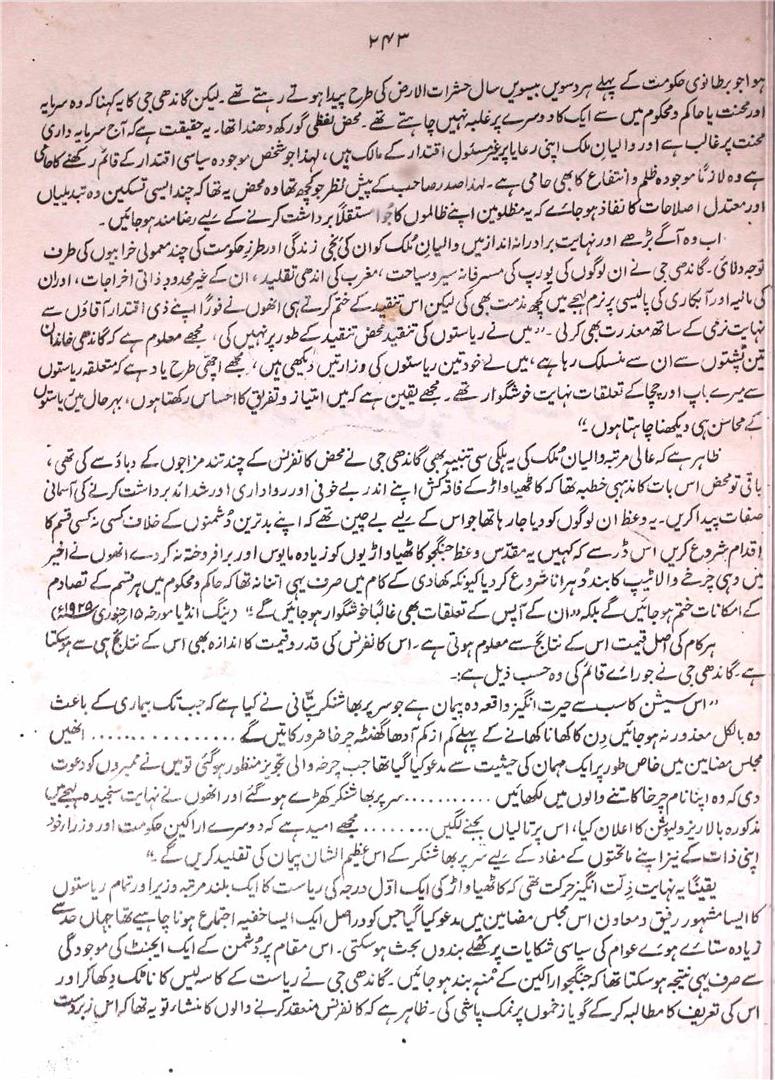 ۲۴۳
ہوا جو برطانوی حکومت کے پہلے ہر دسویں بیسویں سال حشرات الارض کی طرح پیدا ہوتے رہتے تھے۔ لیکن گاندھی جی کا یہ کہنا کہ وہ سرمایہ
اور محنت یا حاکم و محکوم میں سے ایک کا دوسرے پر غلبہ نہیں چاہتے تھے۔ محض لفظی گورکھ دھندا تھا۔ یہ حقیقت ہے کہ آج سرمایہ داری
محنت پر غالب ہے اور والیان ملک اپنی رعایا پر غیر مسئول اقتدار کے مالک ہیں، لہٰذا جو شخص موجودہ سیاسی اقتدار کے قائم رکھنے کا حامی
ہے وہ لازماً موجودہ ظلم و انتفاع کا بھی حامی ہے۔ لہٰذا صدر صاحب کے پیش نظر جو کچھ تھا وہ محض یہ تھا کہ چند ایسی تسکین دہ تبدیلیاں
اور معتدل اصلاحات کا نفاذ ہو جائے کہ یہ مظلومین اپنے ظالموں کا جُوا استقلالاً برداشت کرنے کے لیے رضامند ہو جائیں۔
اب وہ آگے بڑھے اور نہایت برادرانہ انداز میں والیانِ مُلک کو ان کی نجی زندگی اور طرزِ حکومت کی چند معمولی خرابیوں کی طرف
توجہ دلائی۔ گاندھی جی نے ان لوگوں کی یورپ کی مسرفانہ سیر و سیاحت، مغرب کی اندھی تقلید، ان کے غیر محدود ذاتی اخراجات، اور ان
کی مالیہ اور آبکاری کی پالیسی پر نرم لہجے میں کچھ مذمت بھی کی لیکن اس تنقید کے ختم کرتے ہی انھوں نے فوراً اپنے ذی اقتدار آقاؤں سے
نہایت نرمی کے ساتھ معذرت بھی کر لی۔ "میں نے ریاستوں کی تنقید محض تنقید کے طور پر نہیں کی، مجھے معلوم ہے کہ گاندھی خاندان
تین پُشتوں سے ان سے منسلک رہا ہے، میں نے خود تین ریاستوں کی وزارتیں دیکھی ہیں، مجھے اچھی طرح یاد ہے کہ متعلقہ ریاستوں
سے میرے باپ اور چچا کے تعلقات نہایت خوشگوار تھے۔ مجھے یقین ہے کہ میں امتیاز و تفریق کا احساس رکھتا ہوں، بہر حال میں ریاستوں
کے محاسن ہی دیکھنا چاہتا ہوں۔"
ظاہر ہے کہ عالی مرتبہ والیان مُلک کی یہ ہلکی سی تنبیہ بھی گاندھی جی نے محض کانفرنس کے چند تند مزاجوں کے دباؤ سے کی تھی،
باقی تو محض اس بات کا مذہبی خطبہ تھا کہ کاٹھیاواڑ کے فاقہ کش اپنے اندر بے خوفی اور رواداری اور شدائد برداشت کرنے کی آسمانی
صفات پیدا کریں۔ یہ وعظ ان لوگوں کو دیا جا رہا تھا جو اس کے لیے بے چین تھے کہ اپنے بدترین دُشمنوں کے خلاف کسی نہ کسی قسم کا
اقدام شروع کریں اس ڈر سے کہ کہیں یہ مقدس وعظ جنگجو کاٹھیاواڑیوں کو زیادہ مایوس اور برافروختہ نہ کر دے انھوں نے اخیر
میں وہی چرخے والا ٹیپ کا بند دُہرانا شروع کر دیا کیونکہ کھادی کے کام میں صرف یہی اتنا نہ تھا کہ حاکم و محکوم میں ہر قسم کے تصادم
کے امکانات ختم ہو جائیں گے بلکہ "ان کے آپس کے تعلقات بھی غالباً خوشگوار ہو جائیں گے"۔ (ینگ انڈیا مورخہ ۱۵ر جنوری ۱۹۲۵ء)
ہر کام کی اصل قیمت اس کے نتائج سے معلوم ہوتی ہے۔ اس کانفرنس کی قدر و قیمت کا اندازہ بھی اس کے نتائج ہی سے ہو سکتا
ہے۔ گاندھی جی نے جو رائے قائم کی وہ حسب ذیل ہے:-
"اس سیشن کا سب سے حیرت انگیز واقعہ وہ پیمان ہے جو سر پربھاشنکر پٹانی نے کیا ہے کہ جب تک بیماری کے باعث
وہ بالکل معذور نہ ہو جائیں دِن کا کھانا کھانے کے پہلے کم از کم آدھا گھنٹہ چرخا ضرور کاتیں گے ............... انھیں
مجلس مضامین میں خاص طور پر ایک مہمان کی حیثیت سے مدعو کیا گیا تھا جب چرخہ والی تجویز منظور ہو گئی تو میں نے ممبروں کو دعوت
دی کہ وہ اپنا نام چرخا کاتنے والوں میں لکھائیں .......... سر پربھاشنکر کھڑے ہو گئے اور انھوں نے نہایت سنجیدہ لہجے میں
مذکورہ بالا ریزولیوشن کا اعلان کیا، اس پر تالیاں بجنے لگیں ........ مجھے امید ہے کہ دوسرے اراکین حکومت اور وزراء خود
اپنی ذات کے نیز اپنے ماتحتوں کے مفاد کے لیے سر پربھاشنکر کے اس عظیم الشان پیمان کی تقلید کریں گے۔"
یقیناً یہ نہایت ذِلت انگیز حرکت تھی کہ کاٹھیاواڑ کی ایک اوّل درجہ کی ریاست کا ایک بلند مرتبہ وزیر اور تمام ریاستوں
کا ایسا مشہور رفیق و معاون اس مجلس مضامین میں مدعو کیا گیا جس کو دراصل ایک ایسا خفیہ اجتماع ہونا چاہیے تھا جہاں حد سے
زیادہ ستائے ہوئے عوام کی سیاسی شکایات پر کھلے بندوں بحث ہو سکتی۔ اس مقام پر دُشمن کے ایک ایجنٹ کی موجودگی
سے صرف یہی نتیجہ ہو سکتا تھا کہ جنگجو اراکین کے مُنہ بند ہو جائیں۔ گاندھی جی نے ریاست کے کاسہ لیس کا ناٹک دِکھا کر اور
اس کی تعریف کا مطالبہ کر کے گویا زخموں پر نمک پاشی کی۔ ظاہر ہے کہ کانفرنس منعقد کرنے والوں کا منشا تو یہ تھا کہ اس زبردست